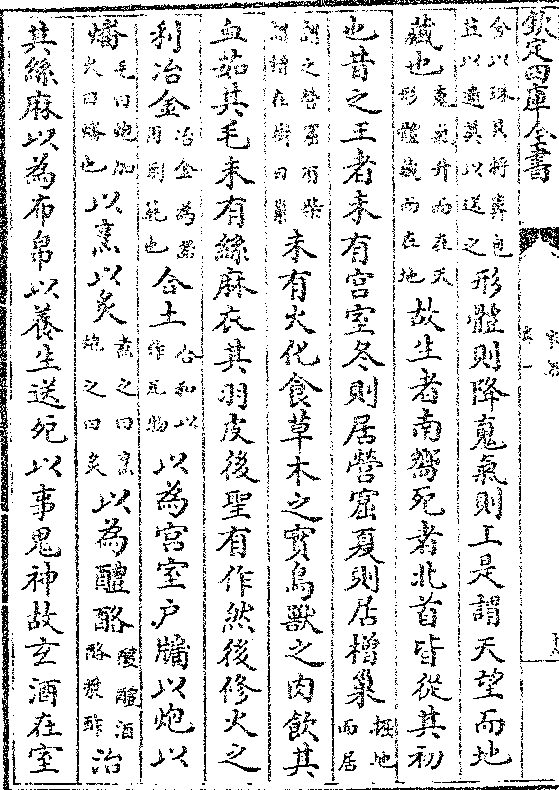 欽定四庫全書
兮以珠貝將葬包
苴以遣奠以送之形體則降䰟氣則上是謂天望而地
藏也䰟氣升而在天
形體藏而在地故生者南嚮死者北首皆從其初
也昔之王者未有宮室冬則居營窟夏則居橧巢掘地
而居
謂之營窟羽柴
謂橧在樹曰巢未有火化食草木之實鳥獸之肉飲其
血茹其毛未有絲麻衣其羽皮後聖有作然後修火之
利冶金冶金為器
用刑範也合土合和以
作瓦物以為宮室户牖以炮以
燔毛曰炮加
火曰燔也以烹以炙煮之曰烹
炮之曰炙以為醴酪醴醴酒
酪漿酢治
其絲麻以為布帛以養生送死以事鬼神故玄酒在室